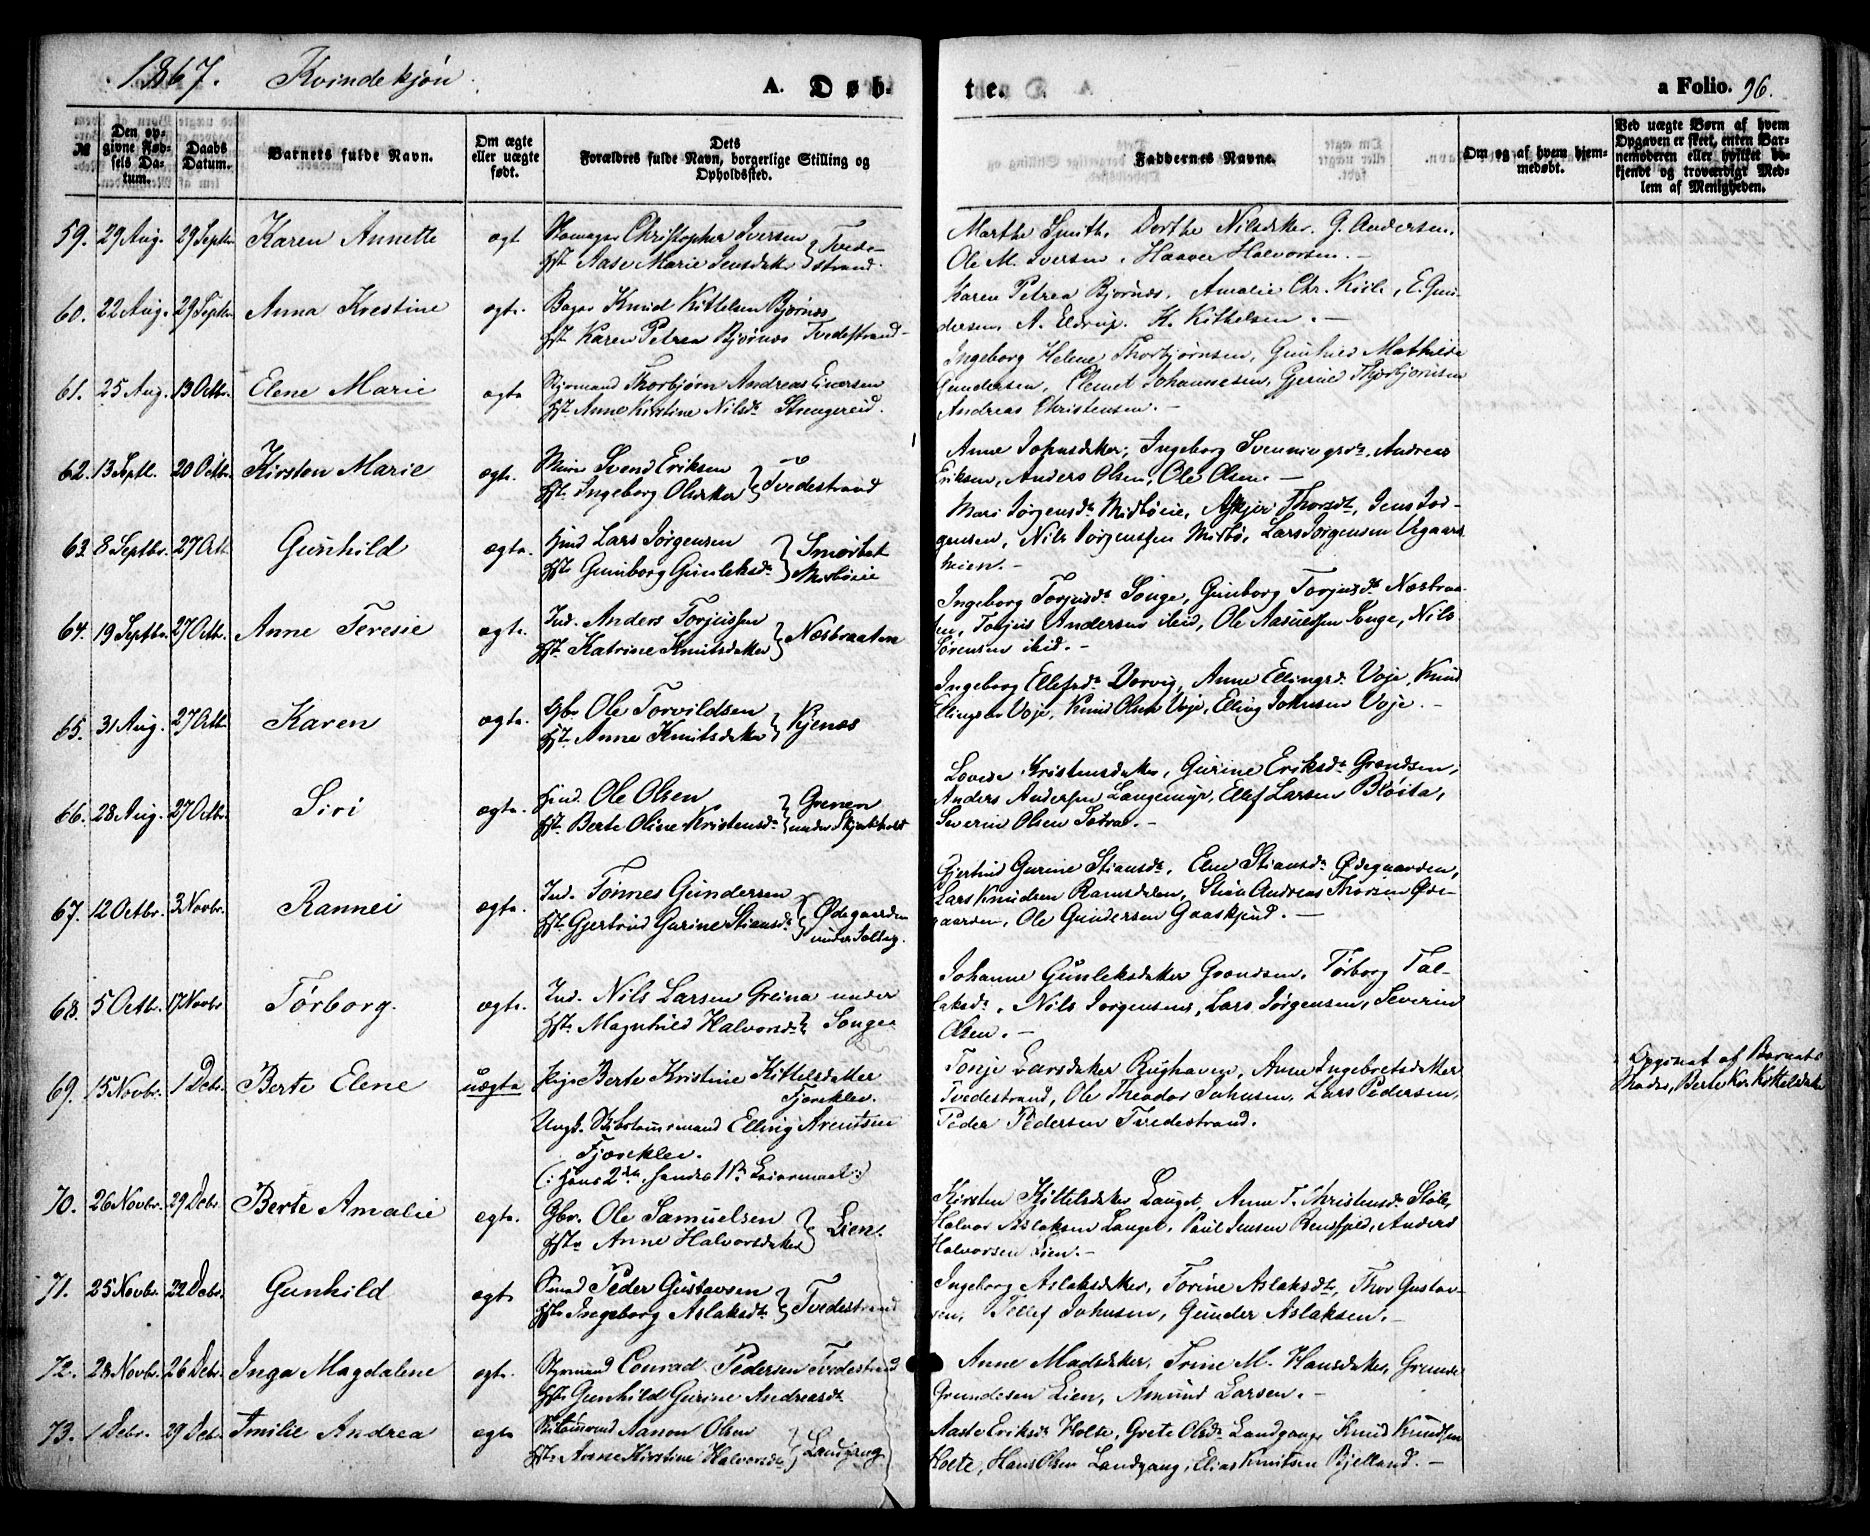 1867. Kvindekjøn. A. Døb- te. a Folio. 96.
№ Den opgivne Fødsels Datum. Daabs Datum. Barnets fulde Navn. Om ægte eller uægte født. Dets Forældres fulde Navn, borgerlige Stilling og Opholdssted. Faddernes Navne. Om og af hvem hjemmedøbt. Ved uægte Børn af hvem Opgaven er skeet, enten Barnemoderen eller hvilket bekjendt og troværdigt Medlem af Menigheden.
59. 29 Aug. 29 Septbr. Karen Annette ægt. Christopher Iversen } Tvede-
Hst. Aase Marie Jensdatter } strand.
Marthe Smith, Dorthe Nilsdtter. G. Andersen,
Ole M. Iversen, Haaver Halvorsen. -
60. 22 Aug. 29 Septbr. Anna Krestine ægte. Bager Knud Kittelsen Bjørnes
Hst. Karen Petrea Bjørnes Tvedestrand -
Karen Petrea Bjørnes, Amalie Chr. E. Gun-
dersen, A. Eldrup. K. Kittelsen. -
61. 25 Aug. 13 Octbr. Elene Marie ægte Styrmand Thorbjørn Andreas
Hst. Anne Kirstine Nilsdtr Strengereid.
Ingeborg Helene Thorbjørnsen, Gunhild Mathilde
Gundersen, Clemet Johannesen, Thorbjørnsen
Andreas Christensen. -
62. 13 Septb. 20 Octbr. Kirsten Marie ægte. Svend Eriksen
Hst. Ingeborg Olsdatter } Tvedestrand
Anne Johnsdatter, Ingeborg Svenningsdr, Andreas
Eriksen, Anders Olsen, Ole Olsen. -
63. 8 Septbr. 27 Oct. Gunhild ægte. Lars Jørgensen
Hst. Gunborg Gunleksdr
Mari Jørgensdr Midbøeie, Askjer Thorsdtr, Jens Jør-
gensen, Nils Jørgenssen Midbø, Lars Jørgensen Vegaars
heien. -
64. 19 Septbr. 27 Octb. Anne Teresie ægte. Ind. Anders Torjussen
Hst. Katrine Knutsdatter } Næsbraaten
Ingeborg Torjusdr Songe, Gunborg Torjusdr Næsbraa-
ten, Torjus Andersen ibid, Ole Aanessen Songe, Nils
Sørensen ibid. -
65. 31 Aug. 27 Oct. Karen ægte. Gbr Ole Torvildsen
Hst. Anne Knutsdatter } Kjenæs
Ingeborg Ellefsdr Vorvig, Anne Ellingsdr Voje, Knud
Ellingsen Voje, Knud Olsen Voje, Elling Johnsen Voje. -
66. 28 Aug. 27 Octbr. Siri ægte. Ole Olsen } Grenen
Hst Berte Oline Kristensdr } under
Lovise Kristensdatter, Gurine Eriksdr Grændsen,
Anders Andersen Langemyr, Ellef Larsen
Severin Olsen -
67. 12 Octbr. 3 Novbr. Rannei ægte. Ind. Tønnes Gundersen } Ødegaarden
Hst. Gjertrud Gurine Stiansdr } under
Gjertrud Gurine Stiansdr, Elen Stiansdr Ødegaarden,
Lars Knudsen Ramsdalen, Stian Andreas Thorsen Øde-
gaarden, Ole Gundersen Gaaskjend. -
68. 5 Octbr. 17 Novbr. Tørborg. ægte. Ind. Nils Larsen Greina under
Hst. Magnhild Halvorsdr } Songe
Johanne Gunleksdatter Grændsen, Tørborg Tal-
laksdr, Nils Jørgensen, Lars Jørgensen, Severin
Olsen. -
69. 15 Novbr. 1 Debr. Berte Elene uægte Pige Berte Kristine Kittelsdatter
Fjæreklev.
Ungk. Skibstømmermand Elling Arentsen
Fjæreklev.
(: Hans 2den, hendes 1ste Leiermaal :)
Tonje Larsdatter Rughaven, Anne Ingebretsdatter
Tvedestrand, Ole Theodor Johnsen, Lars Pedersen,
Peder Pedersen Tvedestrand.
Opgivet af Barnets
Moder, Berte Kr. Kittelsdatter
70. 26 Novbr. 29 Debr. Berte Amalie ægte. Gbr. Ole Samuelsen
Hst. Anne Halvorsdatter } Lien.
Kirsten Kittelsdatter Langet, Anne T. Christensdr
Halvor Aslaksen Langet, Paul Jensen Anders
Halvorsen Lien. -
71. 25 Novbr. 22 Debr. Gunhild ægte Smed Peder Gustavsen
Hst. Ingeborg Aslaksdtr } Tvedestrand
Ingeborg Aslaksdatter, Torine Aslaksdtr, Thor Gustav-
sen, Tellef Johnsen, Gunder Aslaksen. -
72. 28 Novbr. 26 Debr. Inga Magdalene ægte. Styrmand Conrad Pedersen Tvedestrand
Hst. Gunhild Gurine Andreasdtr
Anne Madsdatter, Trine M. Hansdatter, Grunde
Grundesen Lien, Amund Larsen. -
73. 1 Debr. 29 Debr. Emilie Andrea ægte Aanon Olsen
Hst. Anne Kirstine Halvorsdr } Landgang
Aasle Eriksdr Holte, Grete Olsdr Landgang, Knud Knudsen
Holte, Hans Olsen Landgang, Elias Knutsen Bjelland. -